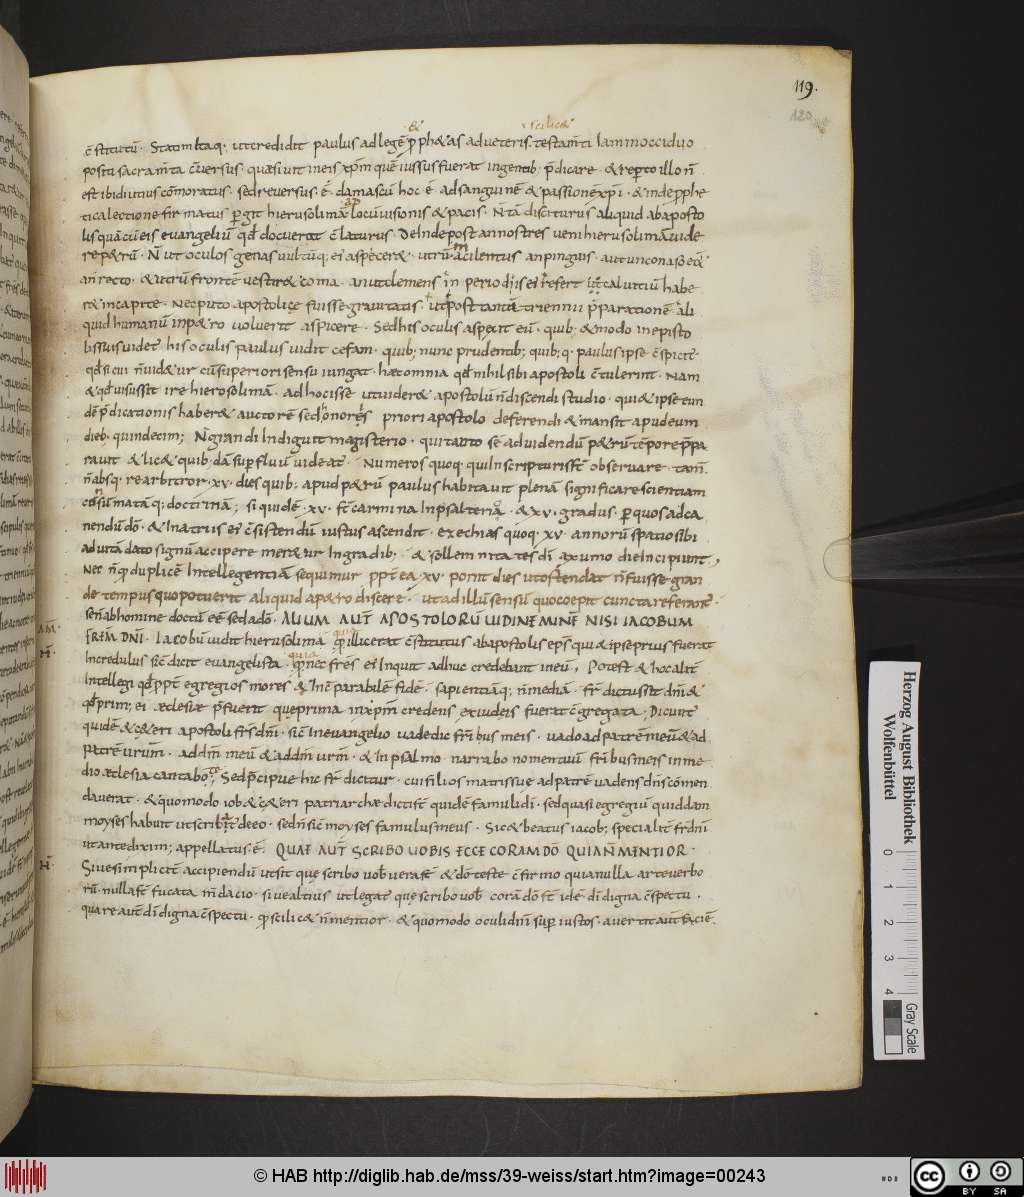 119.
120
·&·
·scilic&
c̄stitutū· Statim itaq· ut credidit paulus ad legē p̄ph&as ad ueteris· testam̄ti iam in occiduo
positi sacram̄ta c̄uersus· quasiuit in eis xp̄m quē iussus fuerat in gentib· p̄dicare· & rep̄to illo n̄
est ibi diutius cōmoratus· sed reuersus· ē· damascū hoc· ē· ad sanguinē & passionē xp̄i· & inde p̄phe
tica lectione firmatus p̄git hierusolimā locū uisionis & pacis· N̄ tā disciturus aliquid ab aposto
lis quā cū eis euangeliū qd̄ docuerat c̄laturus· Deinde post ann̄os tres ueni hierusolimā uide
re p&rū· N̄ ut oculos genas uultūq; ei aspicer&· utrū macilentus an pinguis· aut unco naso e&
an recto· & utrū frontē uestir& coma· an ut clemens in periodis ei refert caluitiū habe
r& in capite· Nec puto apostolicę fuisse grauitatis ut post tantā triennii p̄parationē ali
quid humanū in p&ro uoluerit aspicere· Sed his oculis aspexit eū· quib; & modo in episto
lis suis uidet his oculis paulus uidit cefam· quib; nunc prudentib; quib; q· paulus ipse c̄spicit·
qd̄ si cui n̄ uid&ur cū superiori sensu iungat· haec omnia qd̄ nihil sibi apostoli c̄tulerint· Nam
& qd̄ uisus sit ire hierosolimā· ad hoc isse ut uider& apostolū n̄ discendi studio· qui & ipse eun
dē p̄dicationis haber& auctorē sed honoris priori apostolo deferendi & mansit apud eum
dieb· quindecim; N̄ grandi indiguit magisterio· qui tanto se ad uidendū p&rū tēpore p̄pa
rauit & lic& quib·dā supfluū uideat· Numeros quoq· qui in scripturis st̄ obseruare· tam̄
n̄ absq· re arbitror· xv· dies quib; apud p&rū paulus habitauit plenā significare scientiam
cōsūmatāq; doctrinā; si quidē· xv· st̄ carmina in psalterio· & xv· gradus· p quos ad ca
nendū dō· & in atriis ei c̄sistendū iustus ascendit· ezechias quoq· xv· annorū spatio sibi
ad uitā dato signū accipere mer&ur in gradib;· & sollemnitates dī maxumo die incipiunt,
Nec n̄ duplicē intellegentiā sequimur ppt̄ ea xv· ponit dies ut ostendat n̄ fuisse gran
de tempus quo potuerit aliquid a p&ro discere· ut ad illū sensū quo coepit cuncta referant·
se n̄ ab homine doctū eē sed a dō· ALIUM AUT̄ APOSTOLORŪ UIDI NEMINĒ NISI IACOBUM
FRĒM DN̄I· Iacobū uidit hierusolima qui illic erat c̄stitutus ab apostolis ep̄s qui & ipse prius fuerat
incredulus sic̄ dicit euangelista· quia nec frēs ei inquit adhuc credebant in eū, Potest & hoc alit̄
intellegi qd̄ ppt̄ egregios mores & inc̄parabilē fidē· sapientiāq; n̄ mediā· fr̄ dictus sit dn̄i &
qd̄ prim; ei ęclesiæ p̄fuerit quę prima in xp̄m credens ex iudeis fuerat c̄gregata; Dicunt
quidē & c&eri apostoli frs̄ dn̄i· sic̄ in euangelio uade dic fr̄ibus meis· uado ad patrē meū & ad
patrē urūm· ad dm̄ meū & ad dm̄ urm̄· & in psalmo narrabo nomen tuū fr̄ibus meis in me
dio æclesia cantabo te; Sed p̄cipue hic fr̄ dicitur· cui filios matris suæ ad patrē uadens dn̄s cōmen
dauerat· & quomodo iob & c&eri patriarchæ dicti st̄ quidē famuli dī· sed quasi egregiū quiddam
moyses habuit ut scrib̄ de eo· sed n̄ sic̄ moyses famulus meus· Sic & beatus iacob; specialit̄ fr̄ dn̄i
ut ante dixim; appellatus· ē· QUAE AUT̄ SCRIBO UOBIS ECCE CORAM DŌ QUIA N̄ MENTIOR·
Siue simplicit̄ accipiendū ut sit quę scribo uob̄ uera st̄ & dō teste c̄firmo quia nulla arte uerbo
rū· nulla st̄ fucata m̄dacio· si ue altius ut legat quę scribo uob̄ corā dō st̄ idē· dī digna c̄spectu·
quare aut̄ dī digna c̄spectu· q̄ scilic& n̄ mentior· & quomodo oculi dn̄i sup iustos· auertit aut̄ faciē·
Herzog August Bibliothek
Wolfenbüttel
0 1 2 3 4
Gray Scale
© HAB http://diglib.hab.de/mss/39-weiss/start.htm?image=00243
cc BY SA